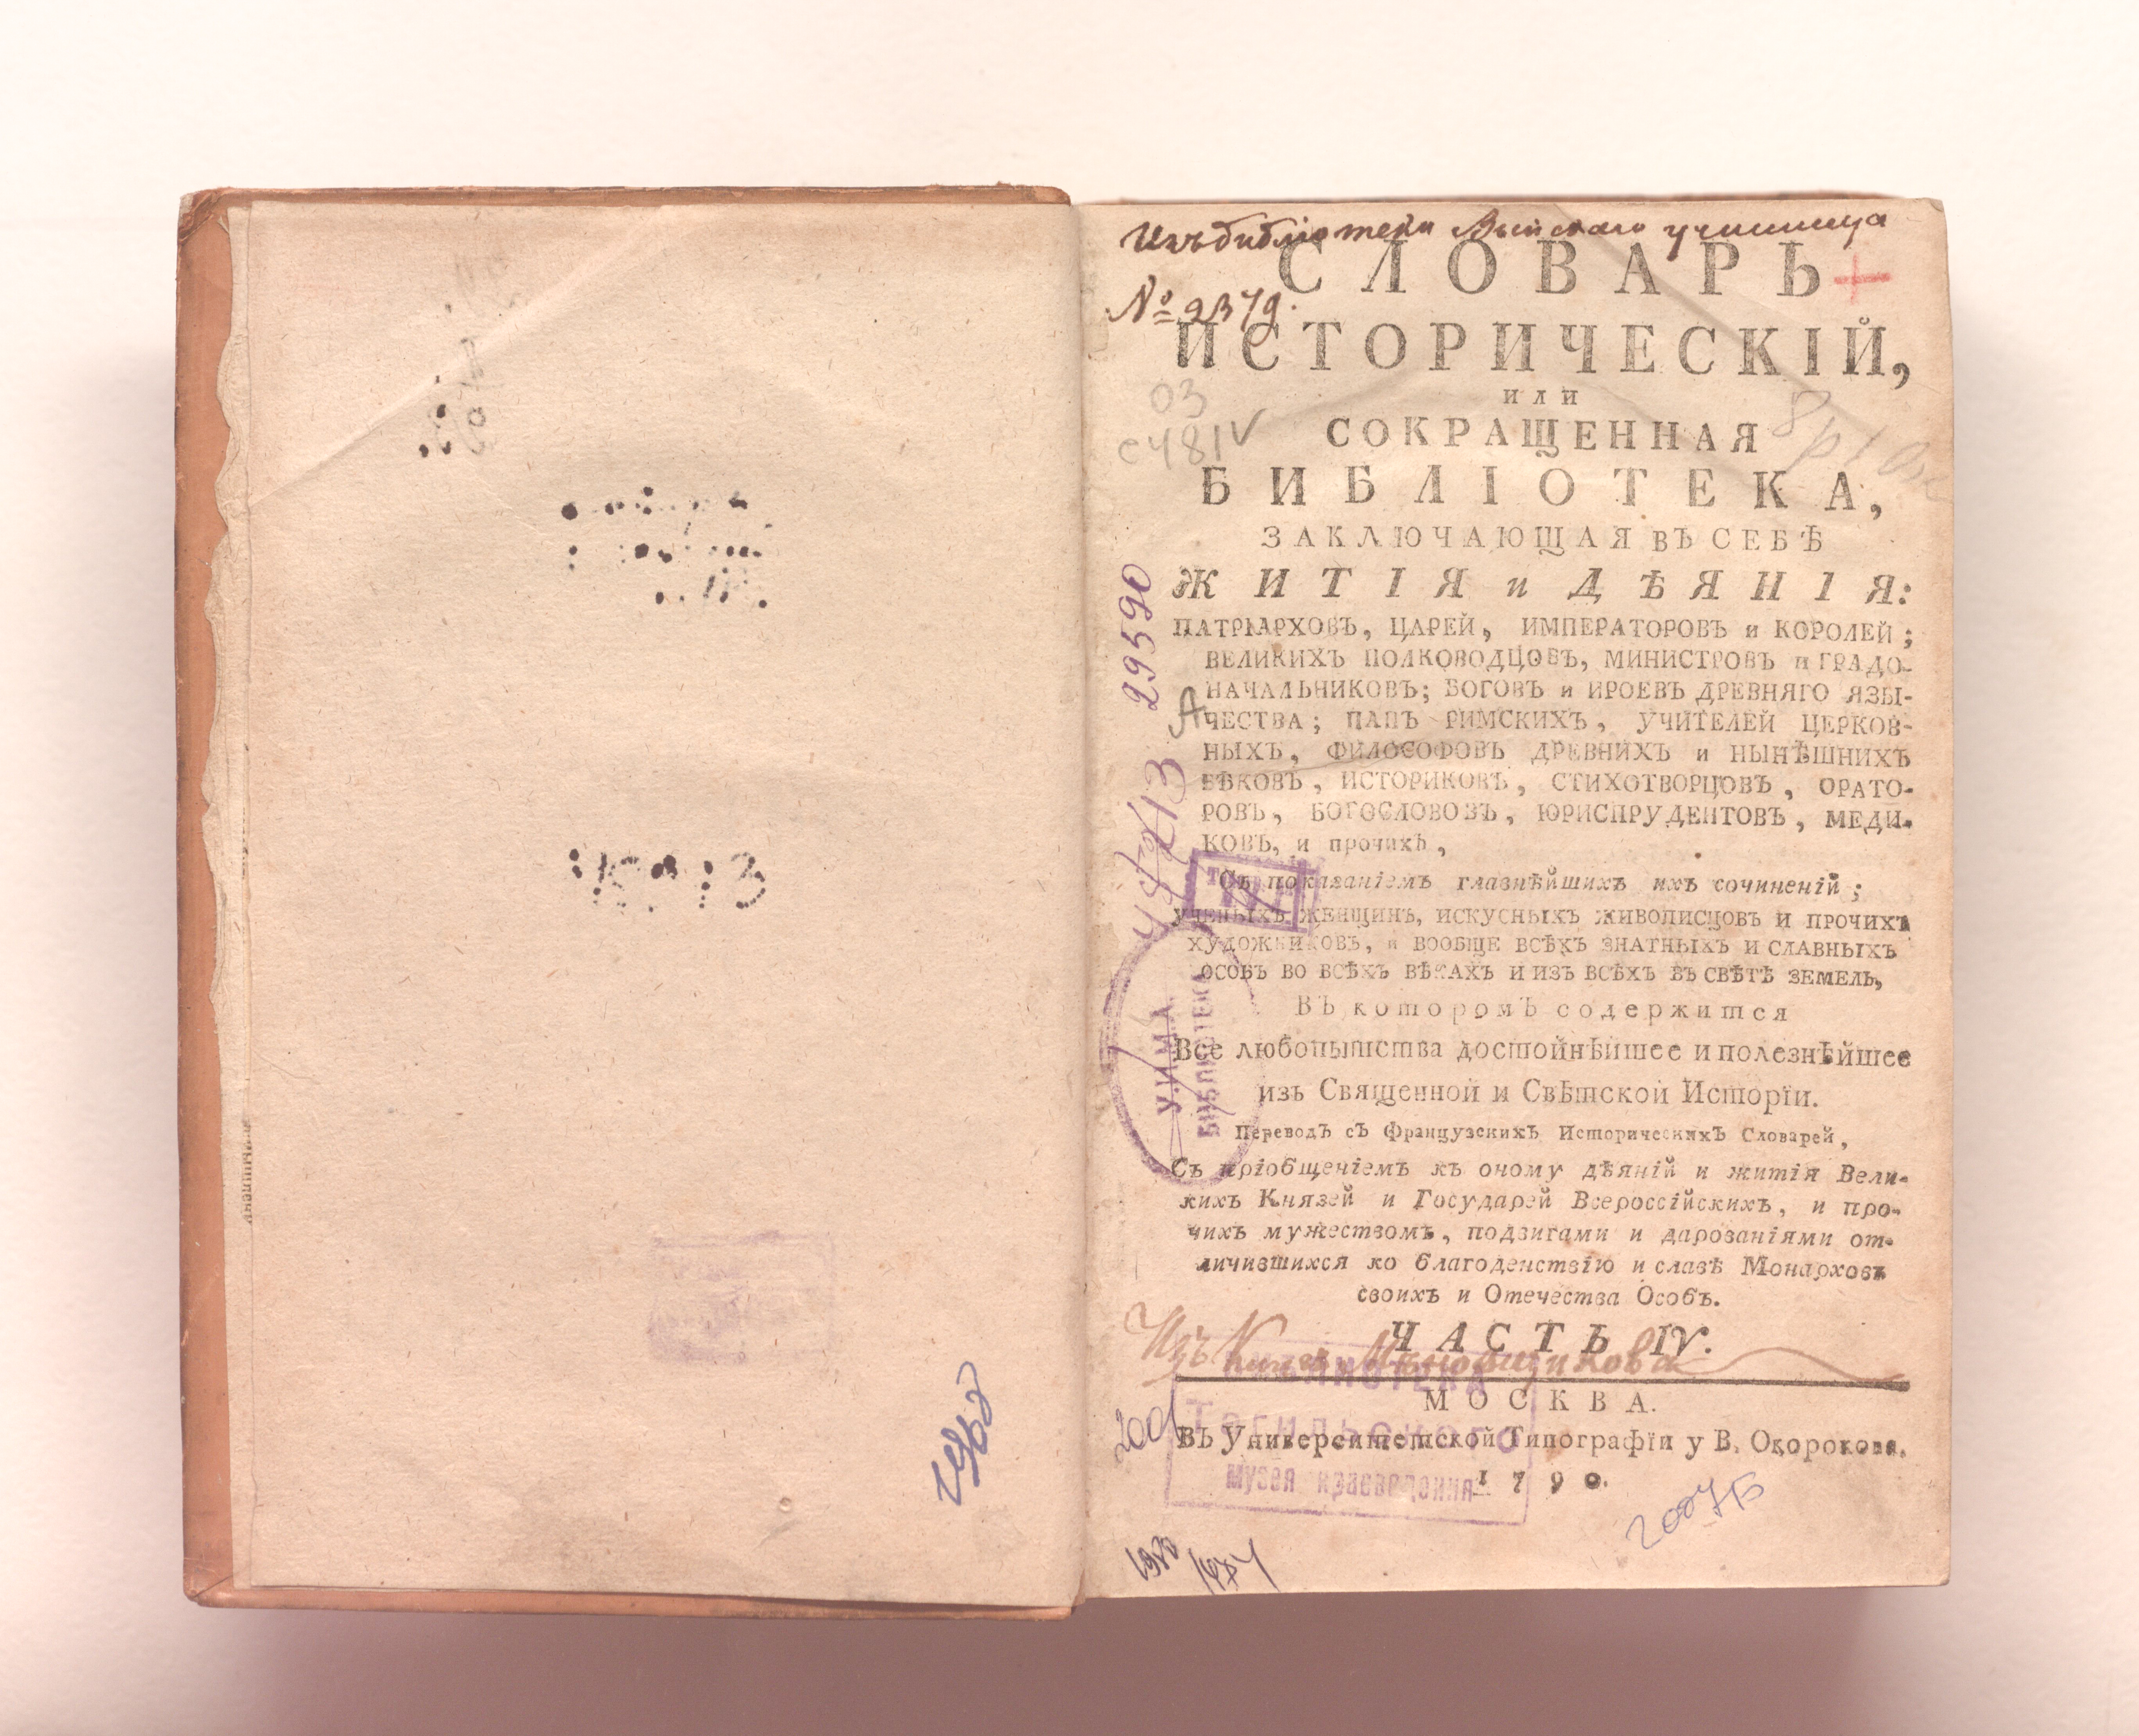 Изъ библіотеки Выйскаго училища
СЛОВАРЬ
№ 2379.
ИСТОРИЧЕСКІЙ,
ИЛИ
03
СОКРАЩЕННАЯ
С481V
БИБЛІОТЕКА,
ЗАКЛЮЧАЮЩАЯ ВЪ СЕБѢ
ЖИТІЯ и ДѢЯНІЯ:
ПАТРІАРХОВЪ, ЦАРЕЙ, ИМПЕРАТОРОВЪ и КОРОЛЕЙ;
ВЕЛИКИХЪ ПОЛКОВОДЦОВЪ, МИНИСТРОВЪ и ГРАДО-
НАЧАЛЬНИКОВЪ; БОГОВЪ и ИРОЕВЪ ДРЕВНЯГО ЯЗЫ-
ЧЕСТВА; ПАПЪ РИМСКИХЪ, УЧИТЕЛЕЙ ЦЕРКОВ-
НЫХЪ, ФИЛОСОФОВЪ ДРЕВНИХЪ и НЫНѢШНИХЪ
ВѢКОВЪ, ИСТОРИКОВЪ, СТИХОТВОРЦОВЪ, ОРАТО-
РОВЪ, БОГОСЛОВОВЪ, ЮРИСПРУДЕНТОВЪ, МЕДИ-
КОВЪ, и прочихъ,
Съ показаніемъ главнѣйшихъ ихъ сочиненій;
УЧЕНЫХЪ ЖЕНЩИНЪ, ИСКУСНЫХЪ ЖИВОПИСЦОВЪ И ПРОЧИХЪ
ХУДОЖНИКОВЪ, и ВООБЩЕ ВСѢХЪ ЗНАТНЫХЪ И СЛАВНЫХЪ
ОСОБЪ ВО ВСѢХЪ ВѢКАХЪ И ИЗЪ ВСѢХЪ ВЪ СВѢТѢ ЗЕМЕЛЬ,
Въ которомъ содержится
Все любопытства достойнѣйшее и полезнѣйшее
изъ Священной и Свѣтской Исторїи.
Переводъ съ Французскихъ Историческихъ Словарей,
Съ пріобщеніемъ къ оному дѣяній и житія Вели-
кихъ Князей и Государей Всероссійскихъ, и про-
чихъ мужествомъ, подвигами и дарованіями от-
личившихся ко благоденствію и славѣ Монарховъ
своихъ и Отечества Особъ.
ЧАСТЬ IV.
Изъ Книгъ
МОСКВА.
Въ Университетской Типографїи у В. Окорокова.
1790.
29590
У.И.М.А.
БИБЛИОТЕКА
БИБЛИОТЕКА
Тагильского
музея краеведения
2007Б